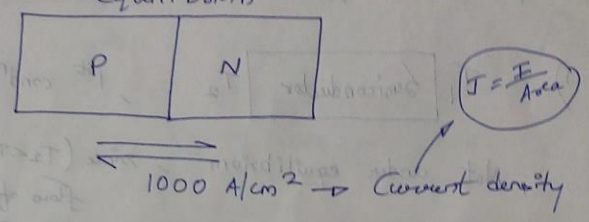 P N
J = I / Area
1000 A/cm² → Current density